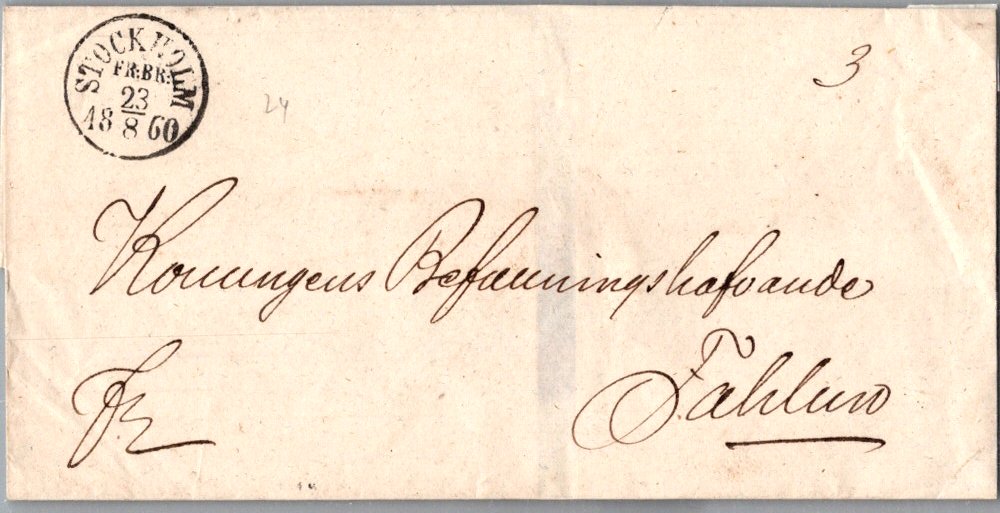 STOCKHOLM
FR:BR:
23
18 8 60
24
3
Konungens Befallningshafvande
Fr
Fahlun